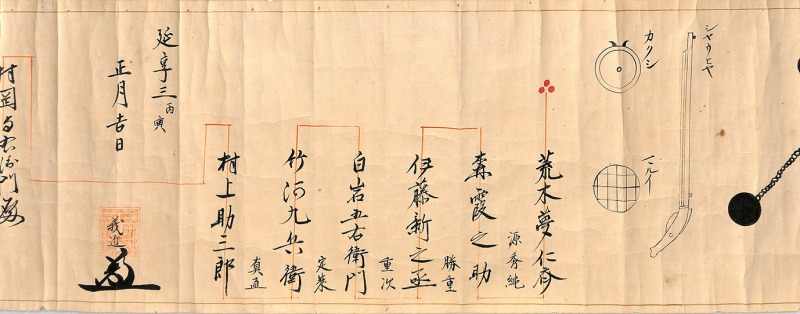 シヤクヒヤ
カクシ
マルイ
荒木夢仁斎
源秀純
森霞之助
勝重
伊藤新之丞
重次
白岩五右衛門
定栄
竹河九兵衛
真直
村上助三郎
義近
延享三丙寅
正月吉日
村岡